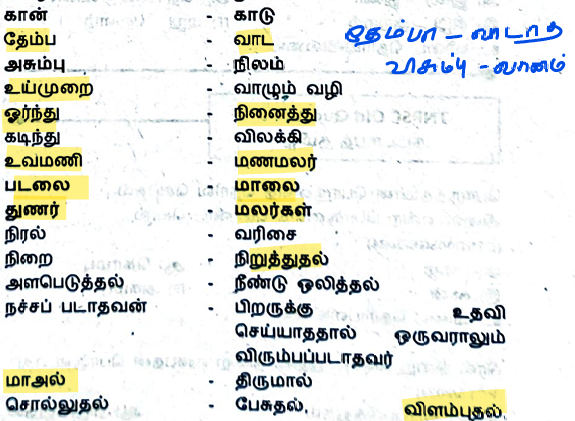 கான் - காடு
தேம்ப - வாட
தேம்பா - வாடாத
அசும்பு - நிலம்
விசும்பு - வானம்
உய்முறை - வாழும் வழி
ஓர்ந்து - நினைத்து
கடிந்து - விலக்கி
உவமணி - மணமலர்
படலை - மாலை
துணர் - மலர்கள்
நிரல் - வரிசை
நிறை - நிறுத்துதல்
அளபெடுத்தல் - நீண்டு ஒலித்தல்
நச்சப் படாதவன் - பிறருக்கு உதவி
செய்யாததால் ஒருவராலும்
விரும்பப்படாதவர்
மாஅல் - திருமால்
சொல்லுதல் - பேசுதல், விளம்புதல்,